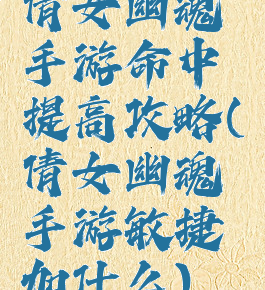 倩女幽魂
手游命中
提高攻略(
倩女幽魂
手游敏捷
加什么)